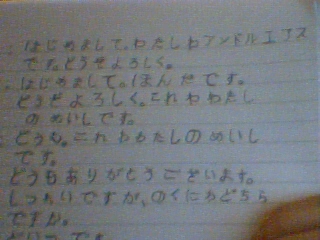 はじめまして。わたしわアンドルエアス
です。どうぞよろしく。
はじめまして。ほんだです。
どうぞよろしく。これわわたし
のめいしです。
どうも。これわわたしのめいし
です。
どうもありがとうございます。
しつれいですが、のくにわどちら
ですか。
です。